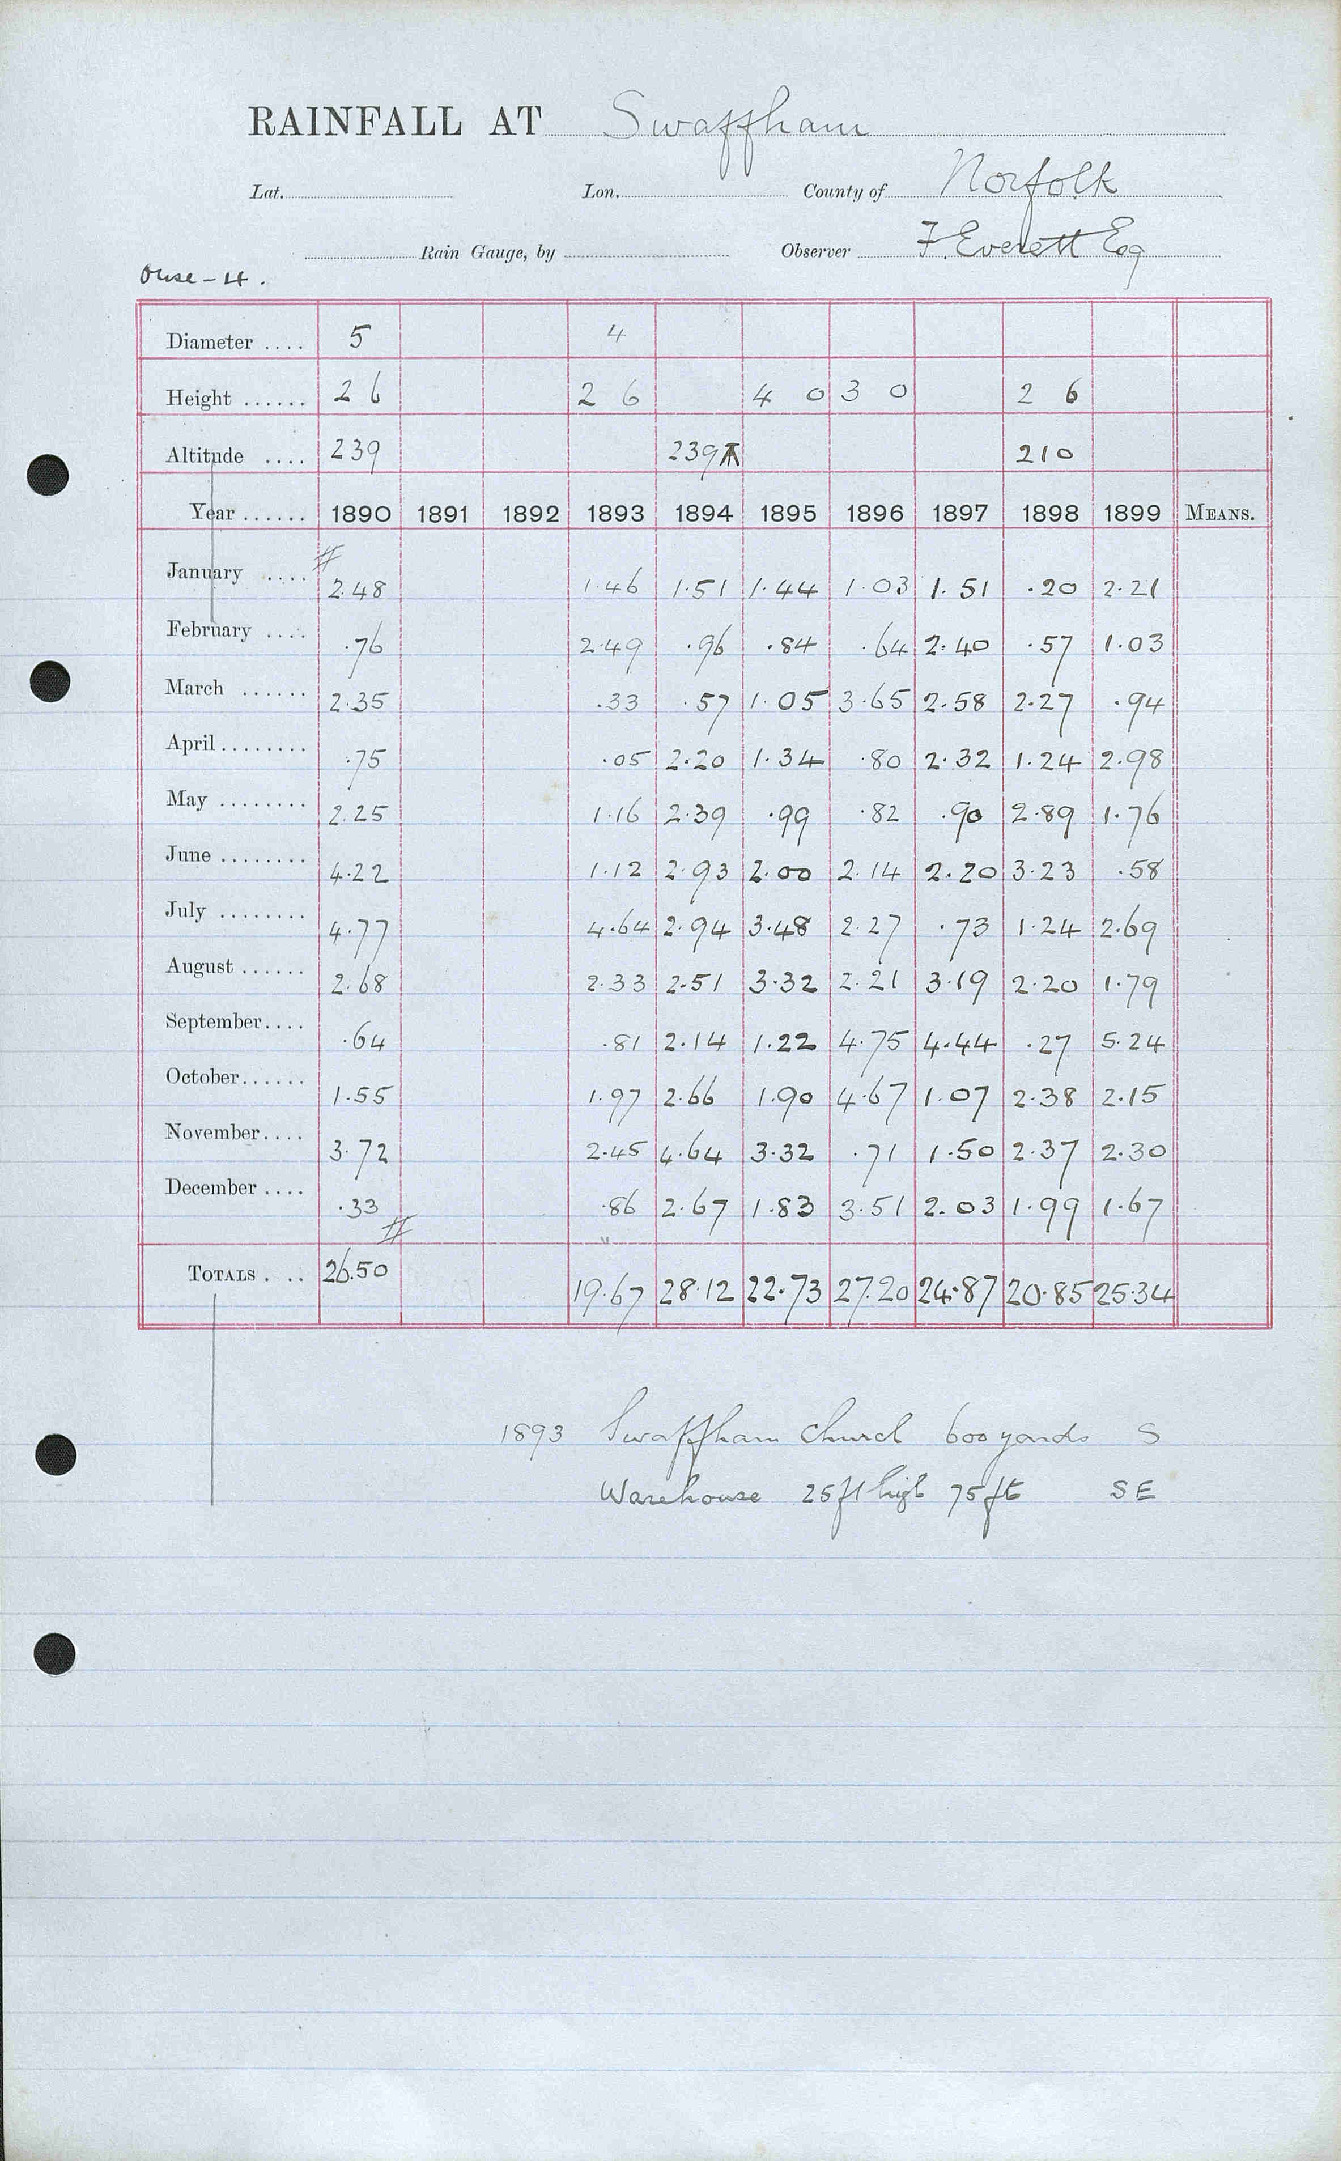 RAINFALL AT Swaffham
Lat. Lon. County of Norfolk
Rain Gauge, by Observer F. Everett Esq
Ouse - 4.
Diameter .... 5 4
Height ...... 2 6 2 6 4 0 3 0 2 6
Altitude .... 239 239 T 210
Year ...... 1890 1891 1892 1893 1894 1895 1896 1897 1898 1899 MEANS.
January .... # 2.48 1.46 1.51 1.44 1.03 1.51 .20 2.21
February .... .76 2.49 .96 .84 .64 2.40 .57 1.03
March ...... 2.35 .33 .57 1.05 3.65 2.58 2.27 .94
April ........ .75 .05 2.20 1.34 .80 2.32 1.24 2.98
May ........ 2.25 1.16 2.39 .99 .82 .90 2.89 1.76
June ........ 4.22 1.12 2.93 2.00 2.14 2.20 3.23 .58
July ........ 4.77 4.64 2.94 3.48 2.27 .73 1.24 2.69
August ...... 2.68 2.33 2.51 3.32 2.21 3.19 2.20 1.79
September .... .64 .81 2.14 1.22 4.75 4.44 .27 5.24
October ...... 1.55 1.97 2.66 1.90 4.67 1.07 2.38 2.15
November .... 3.72 2.45 4.64 3.32 .71 1.50 2.37 2.30
December .... .33 # .86 2.67 1.83 3.51 2.03 1.99 1.67
TOTALS . .. 26.50 19.67 28.12 22.73 27.20 24.87 20.85 25.34
1893 Swaffham Church 600 yards S
Warehouse 25ft high 75ft SE